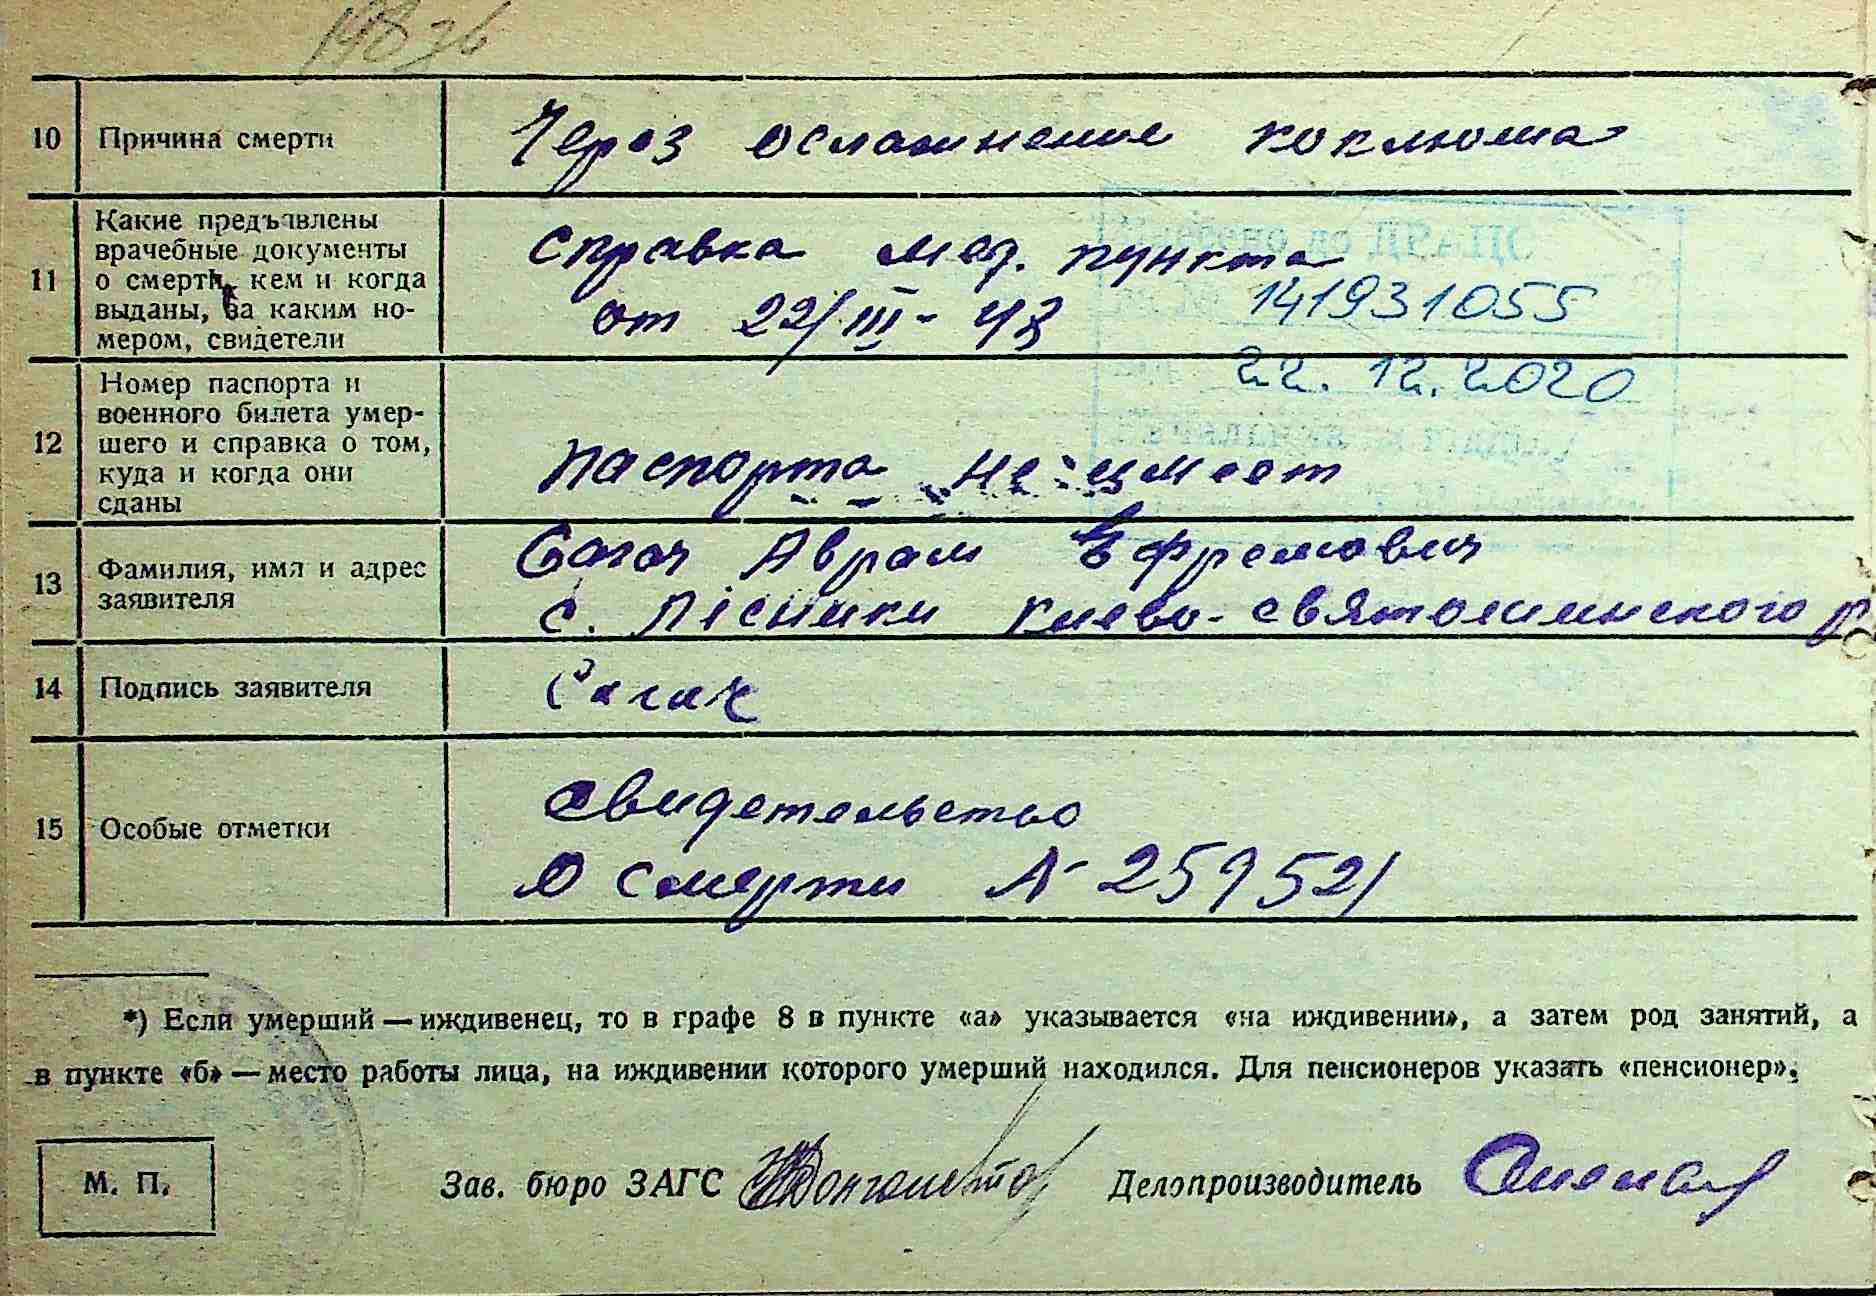 10 Причина смерти Через осложнение коклюша
11 Какие предъявлены врачебные документы о смерти, кем и когда выданы, за каким номером, свидетели
справка мед. пункта
от 22/III - 48
141931055
22.12.2020
12 Номер паспорта и
военного билета умер-
шего и справка о том,
куда и когда они
сданы
Паспорта не имеет
13 Фамилия, имя и адрес
заявителя
Сагач Аврам Ефремович
с. Пісники Киево-святошинского р
14 Подпись заявителя Сагач
15 Особые отметки
свидетельство
о смерти №
*) Если умерший — иждивенец, то в графе 8 в пункте «а» указывается «на иждивении», а затем род занятий, а
в пункте «б» — место работы лица, на иждивении которого умерший находился. Для пенсионеров указать «пенсионер».
М. П.
Зав. бюро ЗАГС
Делопроизводитель